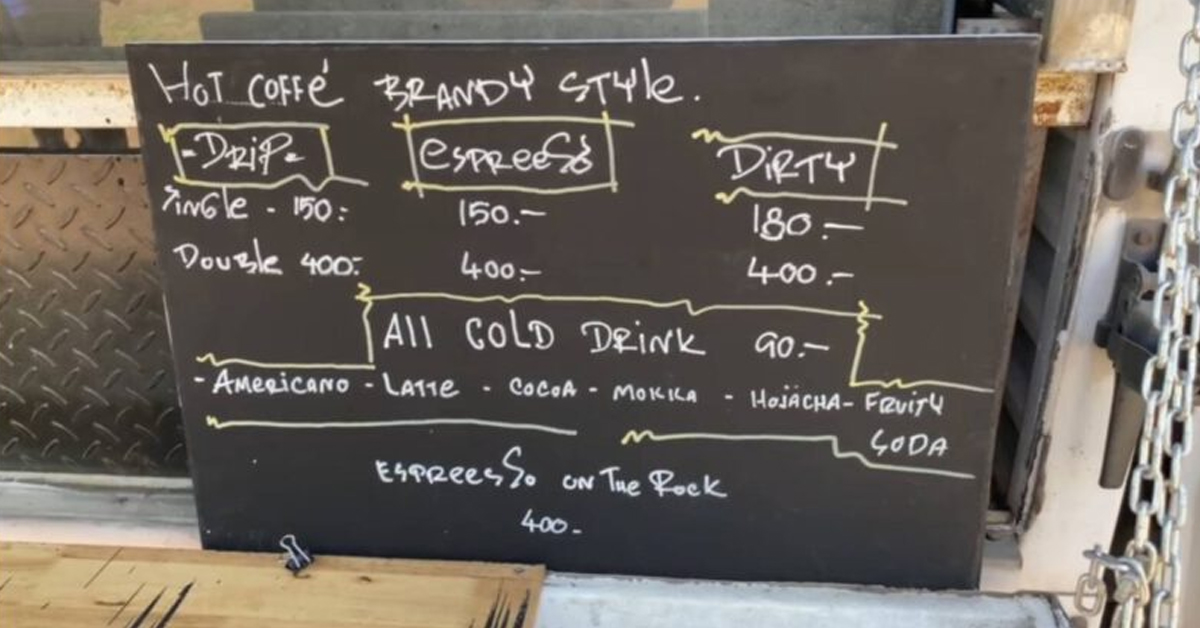 HOT COFFé BRANDY STYle.
-DRiP- espreeSo DiRTY
SiNGle - 150:- 150.- 180.-
DouBle 400:- 400.- 400.-
All COLD DRINK 90.-
- AmeRicANO - LATTE - COCOA - MOKKA - HOJACHA - FRUiTY
SODA
ESPReesSo ON The Rock
400-